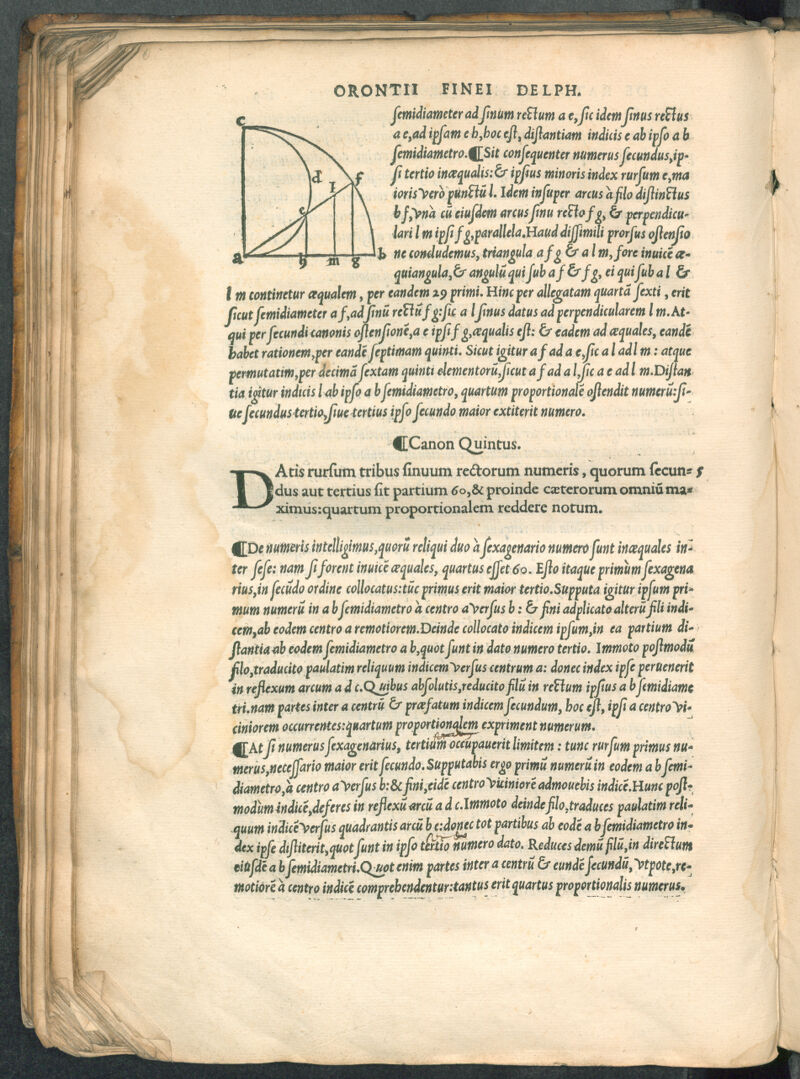 ORONTII FINEI DELPH.
c
d
f
l
e
a
h
m
g
b
ſemidiameter ad ſinum rectum a e, ſic idem ſinus rectus
a e, ad ipſam e h, hoc eſt, diſtantiam indicis e ab ipſo a b
ſemidiametro.¶Sit conſequenter numerus ſecundus, ip-
ſi tertio inæqualis:& ipſius minoris index rurſum e, ma
ioris vero punctū l. Idem inſuper arcus à filo diſtinctus
b f, vnà cū eiuſdem arcus ſinu recto f g, & perpendicu-
lari l m ipſi f g, parallela. Haud diſſimili prorſus oſtenſio
ne concludemus, triangula a f g & a l m, fore inuicē æ-
quiangula, & angulū qui ſub a f & f g, ei qui ſub a l &
l m continetur æqualem, per eandem 29 primi. Hinc per allegatam quartā ſexti, erit
ſicut ſemidiameter a f, ad ſinū rectū f g: ſic a l ſinus datus ad perpendicularem l m. At-
qui per ſecundi canonis oſtenſionē, a e ipſi f g, æqualis eſt: & eadem ad æquales, eandē
habet rationem, per eandē ſeptimam quinti. Sicut igitur a f ad a e, ſic a l ad l m : atque
permutatim, per decimā ſextam quinti elementorū, ſicut a f ad a l, ſic a e ad l m. Diſtan
tia igitur indicis l ab ipſo a b ſemidiametro, quartum proportionalē oſtendit numerū: ſi-
ue ſecundus tertio, ſiue tertius ipſo ſecundo maior extiterit numero.
¶Canon Quintus.
DAtis rurſum tribus ſinuum rectorum numeris, quorum ſecun= 5
dus aut tertius ſit partium 60, & proinde cæterorum omniū ma=
ximus: quartum proportionalem reddere notum.
¶De numeris intelligimus, quorū reliqui duo à ſexagenario numero ſunt inæquales in-
ter ſeſe: nam ſi forent inuicē æquales, quartus eſſet 60. Eſto itaque primùm ſexagena
rius, in ſecūdo ordine collocatus: tūc primus erit maior tertio. Supputa igitur ipſum pri-
mum numerū in a b ſemidiametro à centro a verſus b : & fini adplicato alterū fili indi-
cem, ab eodem centro a remotiorem. Deinde collocato indicem ipſum, in ea partium di-
ſtantia ab eodem ſemidiametro a b, quot ſunt in dato numero tertio. Immoto poſtmodū
filo, traducito paulatim reliquum indicem verſus centrum a: donec index ipſe peruenerit
in reflexum arcum a d c. Quibus abſolutis, reducito filū in rectum ipſius a b ſemidiame
tri. nam partes inter a centrū & præfatum indicem ſecundum, hoc eſt, ipſi a centro vi-
ciniorem occurrentes: quartum proportionalem expriment numerum.
¶At ſi numerus ſexagenarius, tertium occupauerit limitem : tunc rurſum primus nu-
merus, neceſſario maior erit ſecundo. Supputabis ergo primū numerū in eodem a b ſemi-
diametro, à centro a verſus b: & fini, eidē centro viciniorē admouebis indicē. Hunc poſt-
modùm indicē, deferes in reflexū arcū a d c. Immoto deinde filo, traduces paulatim reli-
quum indicē verſus quadrantis arcū b c: donec tot partibus ab eodē a b ſemidiametro in-
dex ipſe diſtiterit, quot ſunt in ipſo tertio numero dato. Reduces demū filū, in directum
eiuſdē a b ſemidiametri. Quot enim partes inter a centrū & eundē ſecundū, vtpote, re-
motiorē à centro indicē comprehendentur: tantus erit quartus proportionalis numerus.